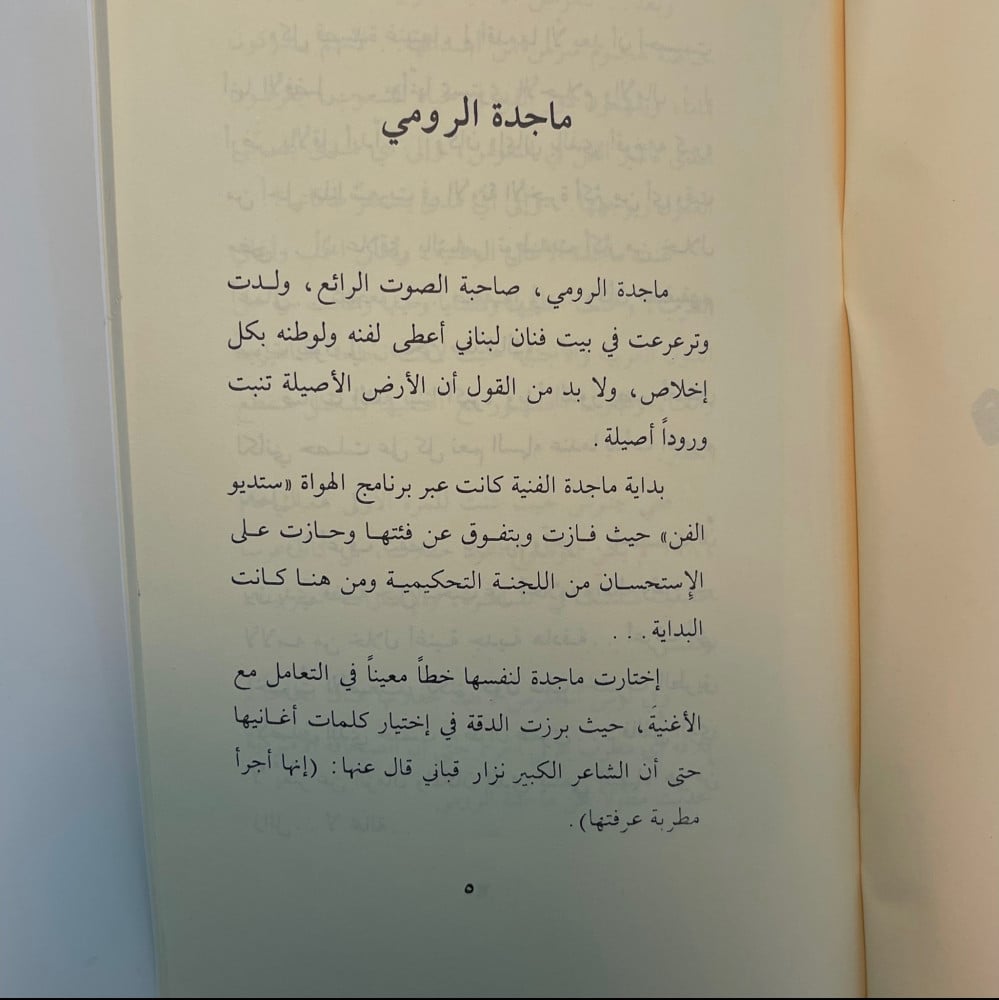 ماجدة الرومي
ماجدة الرومي، صاحبة الصوت الرائع، ولدت
وترعرعت في بيت فنان لبناني أعطى لفنه ولوطنه بكل
إخلاص، ولا بد من القول أن الأرض الأصيلة تنبت
وروداً أصيلة.
بداية ماجدة الفنية كانت عبر برنامج الهواة «ستديو
الفن» حيث فازت وبتفوق عن فئتها وحازت على
الإستحسان من اللجنة التحكيمية ومن هنا كانت
البداية...
إختارت ماجدة لنفسها خطاً معيناً في التعامل مع
الأغنية، حيث برزت الدقة في إختيار كلمات أغانيها
حتى أن الشاعر الكبير نزار قباني قال عنها: (إنها أجرأ
مطربة عرفتها).
٥